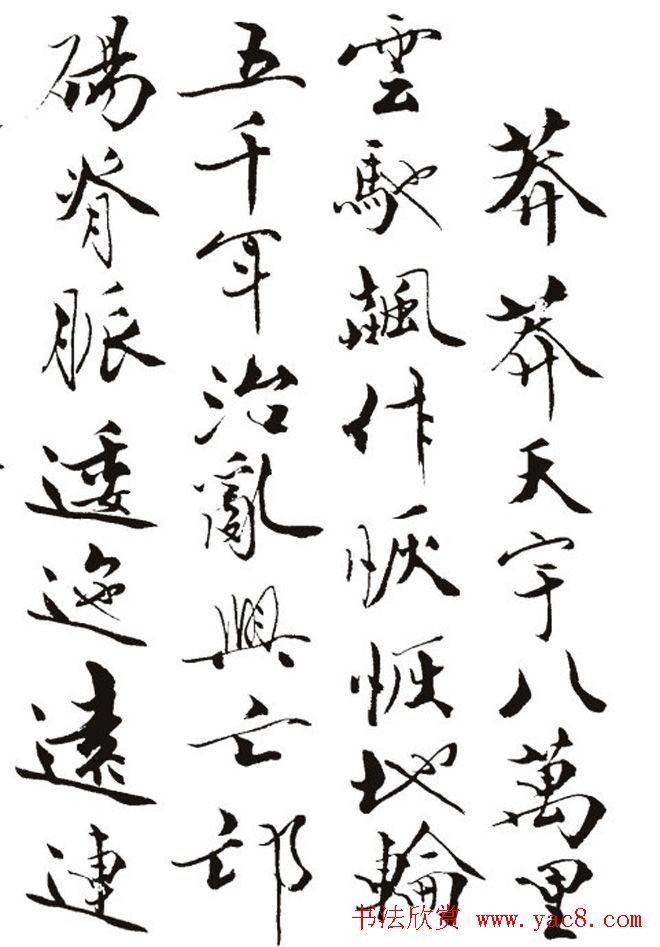 莽莽天宇八萬里
雲馳飆作恢恢地輪
五千年治亂興亡邙
碭脊脈逶迤遠連
书法欣赏 www.yac8.com